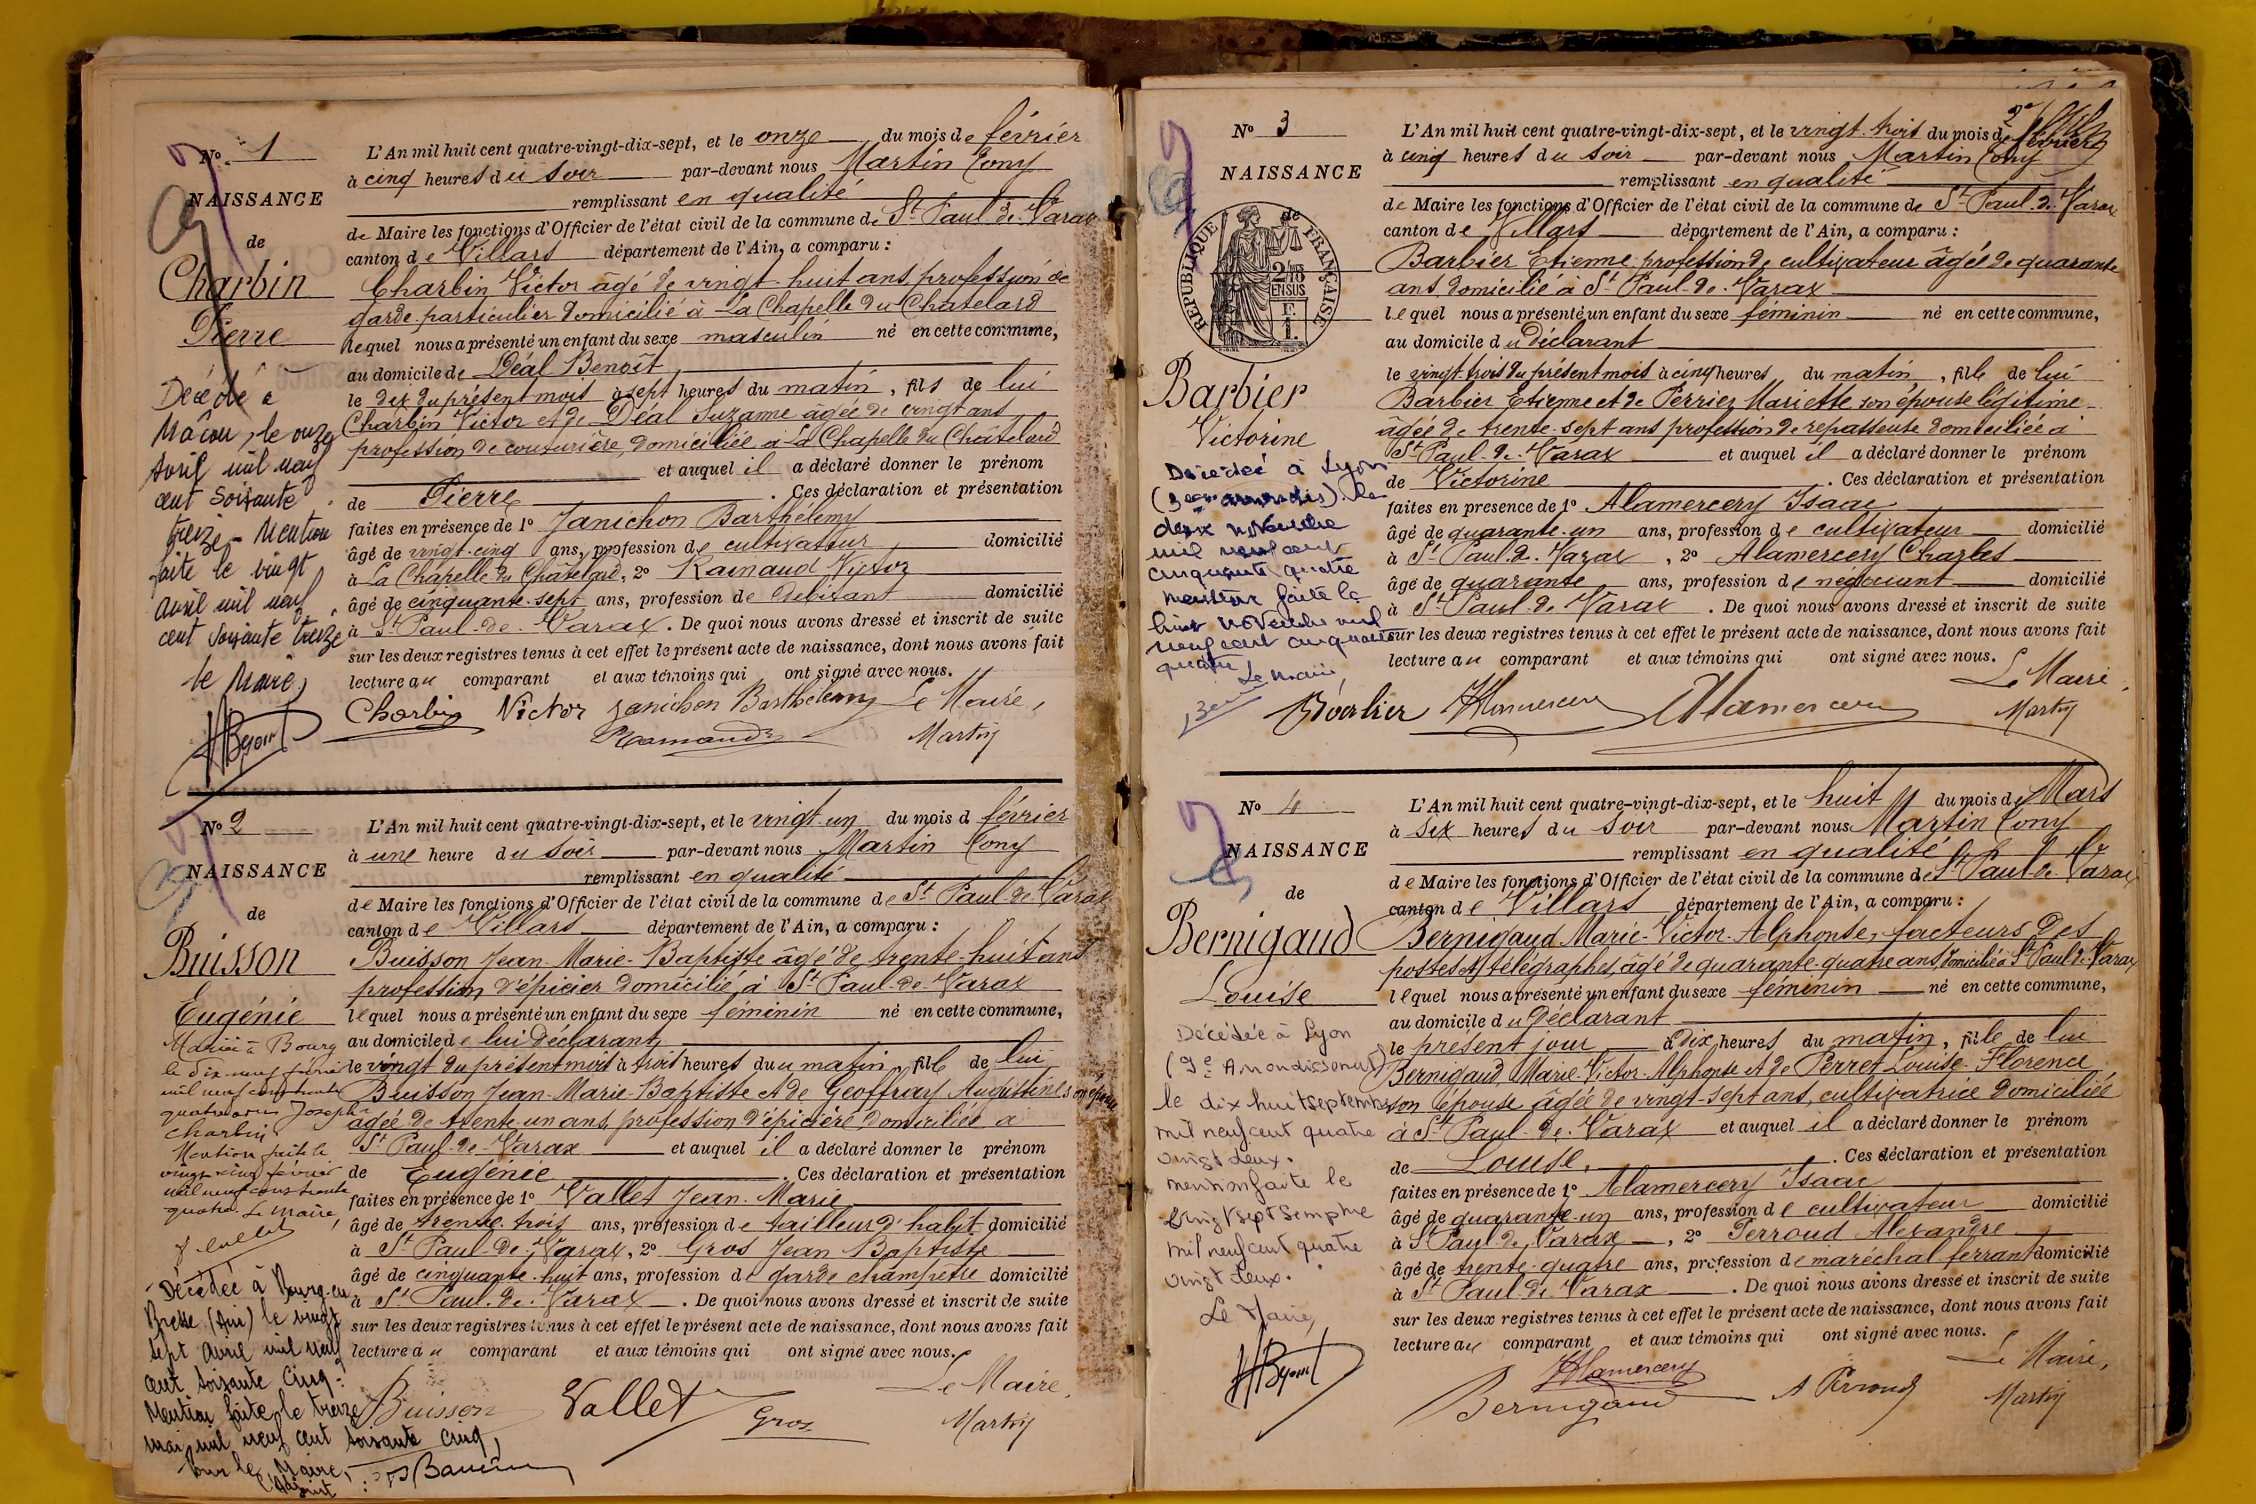 No. 1
NAISSANCE
de
Charbin
Pierre
Décédé à
Mâcon, le onze
avril mil neuf
cent soixante
treize - Mention
faite le vingt
avril mil neuf
cent soixante treize
le Maire,
L'An mil huit cent quatre-vingt-dix-sept, et le onze du mois de février
à cinq heures du soir par-devant nous Martin Tony
remplissant en qualité
de Maire les fonctions d'Officier de l'état civil de la commune de St Paul de Varax
canton de Villars département de l'Ain, a comparu :
Charbin Victor âgé de vingt-huit ans, profession de
garde particulier domicilié à La Chapelle du Chatelard
lequel nous a présenté un enfant du sexe masculin né en cette commune,
au domicile de Déal Benoît
le dix du présent mois à sept heures du matin, fils de lui
Charbin Victor et de Déal Suzanne âgée de vingt ans
profession de couturière, domiciliée à La Chapelle du Châtelard
et auquel il a déclaré donner le prénom
de Pierre . Ces déclaration et présentation
faites en présence de 1º Janichon Barthélemy
âgé de vingt-cinq ans, profession de cultivateur domicilié
à La Chapelle du Châtelard, 2º Rainaud Victor
âgé de cinquante-sept ans, profession de débitant domicilié
à St Paul-de-Varax. De quoi nous avons dressé et inscrit de suite
sur les deux registres tenus à cet effet le présent acte de naissance, dont nous avons fait
lecture au comparant et aux témoins qui ont signé avec nous.
Charbin Victor Janichon Barthélemy Le Maire,
Martin
No 2
NAISSANCE
de
Buisson
Eugénie
Mariée à Bourg
le dix neuf février
mil neuf cent trente
quatre avec Joseph
Charbin
Mention faite le
vingt cinq février
mil neuf cent trente
quatre. Le Maire,
Décédée à Bourg-en
Bresse (Ain) le vingt
sept avril mil neuf
cent soixante cinq.
Mention faite le treize
mai mil neuf cent soixante cinq,
Pour le Maire,
l'Adjoint :
L'An mil huit cent quatre-vingt-dix-sept, et le vingt-un du mois d février
à une heure du soir par-devant nous Martin Tony
remplissant en qualité
de Maire les fonctions d'Officier de l'état civil de la commune de St Paul de Varax
canton de Villars département de l'Ain, a comparu :
Buisson Jean-Marie-Baptiste âgé de trente-huit ans
profession d'épicier domicilié à St Paul-de-Varax
lequel nous a présenté un enfant du sexe féminin né en cette commune,
au domicile de lui déclarant
le vingt du présent mois à trois heures du matin, fille de lui
Buisson Jean-Marie-Baptiste et de Geoffray Augustine son épouse
âgée de trente-un ans, profession d'épicière domiciliée à
St Paul-de-Varax et auquel il a déclaré donner le prénom
de Eugénie . Ces déclaration et présentation
faites en présence de 1º Vallet Jean-Marie
âgé de trente-trois ans, profession de tailleur d'habit domicilié
à St Paul-de-Varax, 2º Gros Jean Baptiste
âgé de cinquante-huit ans, profession de garde champêtre domicilié
à St Paul-de-Varax. De quoi nous avons dressé et inscrit de suite
sur les deux registres tenus à cet effet le présent acte de naissance, dont nous avons fait
lecture au comparant et aux témoins qui ont signé avec nous.
Buisson Vallet Gros Le Maire,
Martin
No 3
NAISSANCE
de
RÉPUBLIQUE FRANÇAISE
2/10
EN SUS
F.
1.
Barbier
Victorine
Décédée à Lyon
le
deux novembre
mil neuf cent
cinquante quatre
mention faite le
huit novembre mil
neuf cent cinquante
quatre
Le Maire,
L'An mil huit cent quatre-vingt-dix-sept, et le vingt-trois du mois de février
à cinq heures du soir par-devant nous Martin Tony
remplissant en qualité
de Maire les fonctions d'Officier de l'état civil de la commune de St Paul-de-Varax
canton de Villars département de l'Ain, a comparu :
Barbier Etienne, profession de cultivateur âgé de quarante
ans, domicilié à St Paul-de-Varax
lequel nous a présenté un enfant du sexe féminin né en cette commune,
au domicile du déclarant
le vingt-trois du présent mois à cinq heures du matin, fille de lui
Barbier Etienne et de Perrier Mariette son épouse légitime
âgée de trente-sept ans profession de repasseuse domiciliée à
St Paul-de-Varax et auquel il a déclaré donner le prénom
de Victorine . Ces déclaration et présentation
faites en présence de 1º Alamercery Isaac
âgé de quarante-un ans, profession de cultivateur domicilié
à St Paul-de-Varax, 2º Alamercery Charles
âgé de quarante ans, profession de négociant domicilié
à St Paul-de-Varax. De quoi nous avons dressé et inscrit de suite
sur les deux registres tenus à cet effet le présent acte de naissance, dont nous avons fait
lecture au comparant et aux témoins qui ont signé avec nous.
Le Maire,
Barbier Alamercery Alamercery Martin
No 4
NAISSANCE
de
Bernigaud
Louise
Décédée à Lyon
(9e Arrondissement)
le dix huit septembre
mil neuf cent quatre
vingt deux.
mention faite le
vingt sept
mil neuf cent quatre
vingt deux.
Le Maire,
L'An mil huit cent quatre-vingt-dix-sept, et le huit du mois de Mars
à six heures du soir par-devant nous Martin Tony
remplissant en qualité
de Maire les fonctions d'Officier de l'état civil de la commune de St Paul-de-Varax
canton de Villars département de l'Ain, a comparu :
Bernigaud Marie-Victor-Alphonse, facteurs des
postes et télégraphes, âgé de quarante-quatre ans, domicilié à St Paul-de-Varax
lequel nous a présenté un enfant du sexe féminin né en cette commune,
au domicile du déclarant
le présent jour à dix heures du matin, fille de lui
Bernigaud Marie-Victor-Alphonse et de Perret Louise-Florence
son épouse âgée de vingt-sept ans, cultivatrice domiciliée
à St Paul-de-Varax et auquel il a déclaré donner le prénom
de Louise. . Ces déclaration et présentation
faites en présence de 1º Alamercery Isaac
âgé de quarante-un ans, profession de cultivateur domicilié
à St Paul-de-Varax, 2º Perroud Alexandre
âgé de trente-quatre ans, profession de maréchal ferrant domicilié
à St Paul-de-Varax. De quoi nous avons dressé et inscrit de suite
sur les deux registres tenus à cet effet le présent acte de naissance, dont nous avons fait
lecture au comparant et aux témoins qui ont signé avec nous.
Alamercery Le Maire,
Bernigaud A Perroud Martin